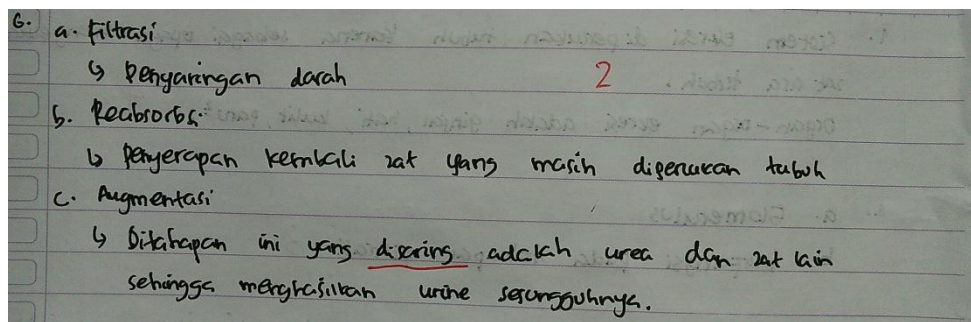 6. a. Filtrasi
↳ Penyaringan darah 2
b. Reabsorbsi
↳ penyerapan kembali zat yang masih diperlukan tubuh
c. Augmentasi
↳ Ditahapan ini yang disaring adalah urea dan zat lain
sehingga menghasilkan urine sesungguhnya.